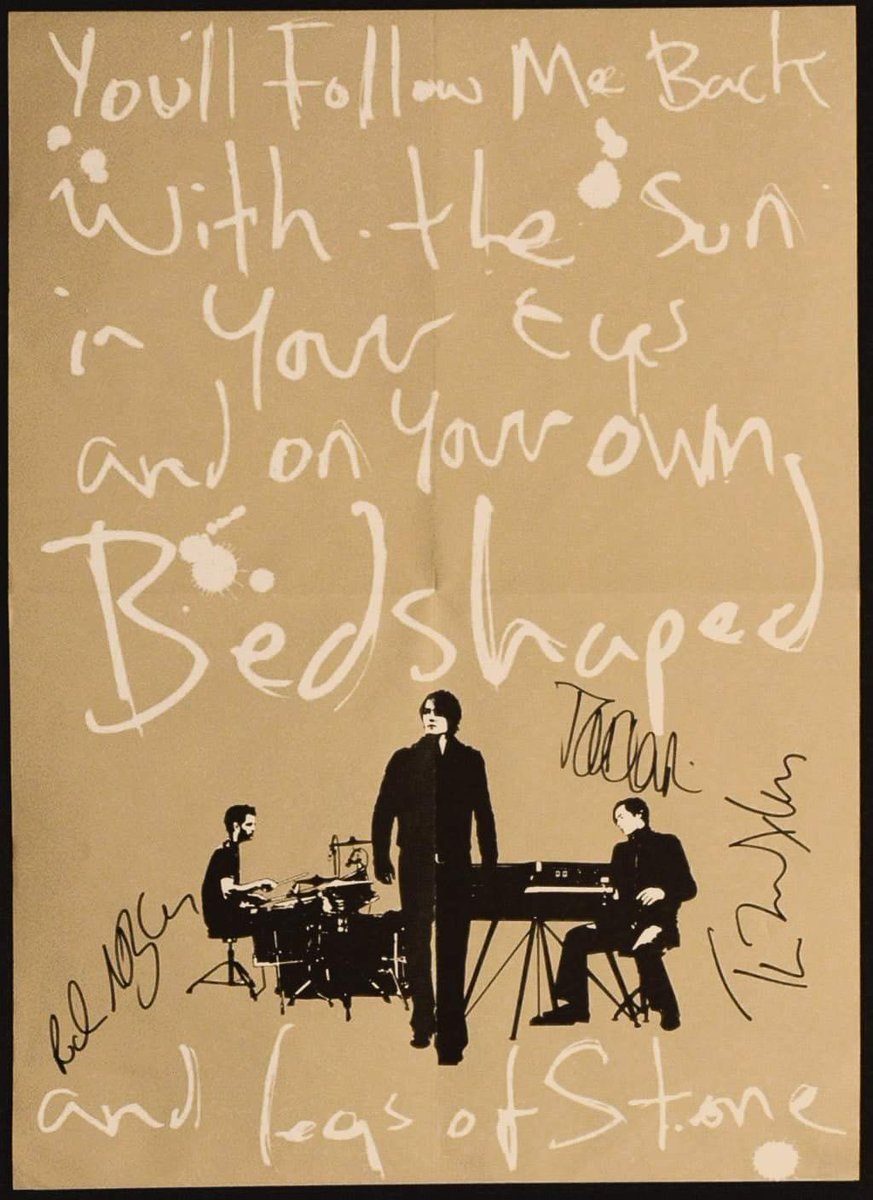 You'll Follow Me Back
With the Sun
in Your Eyes
and on Your own
Bedshaped
and legs of Stone